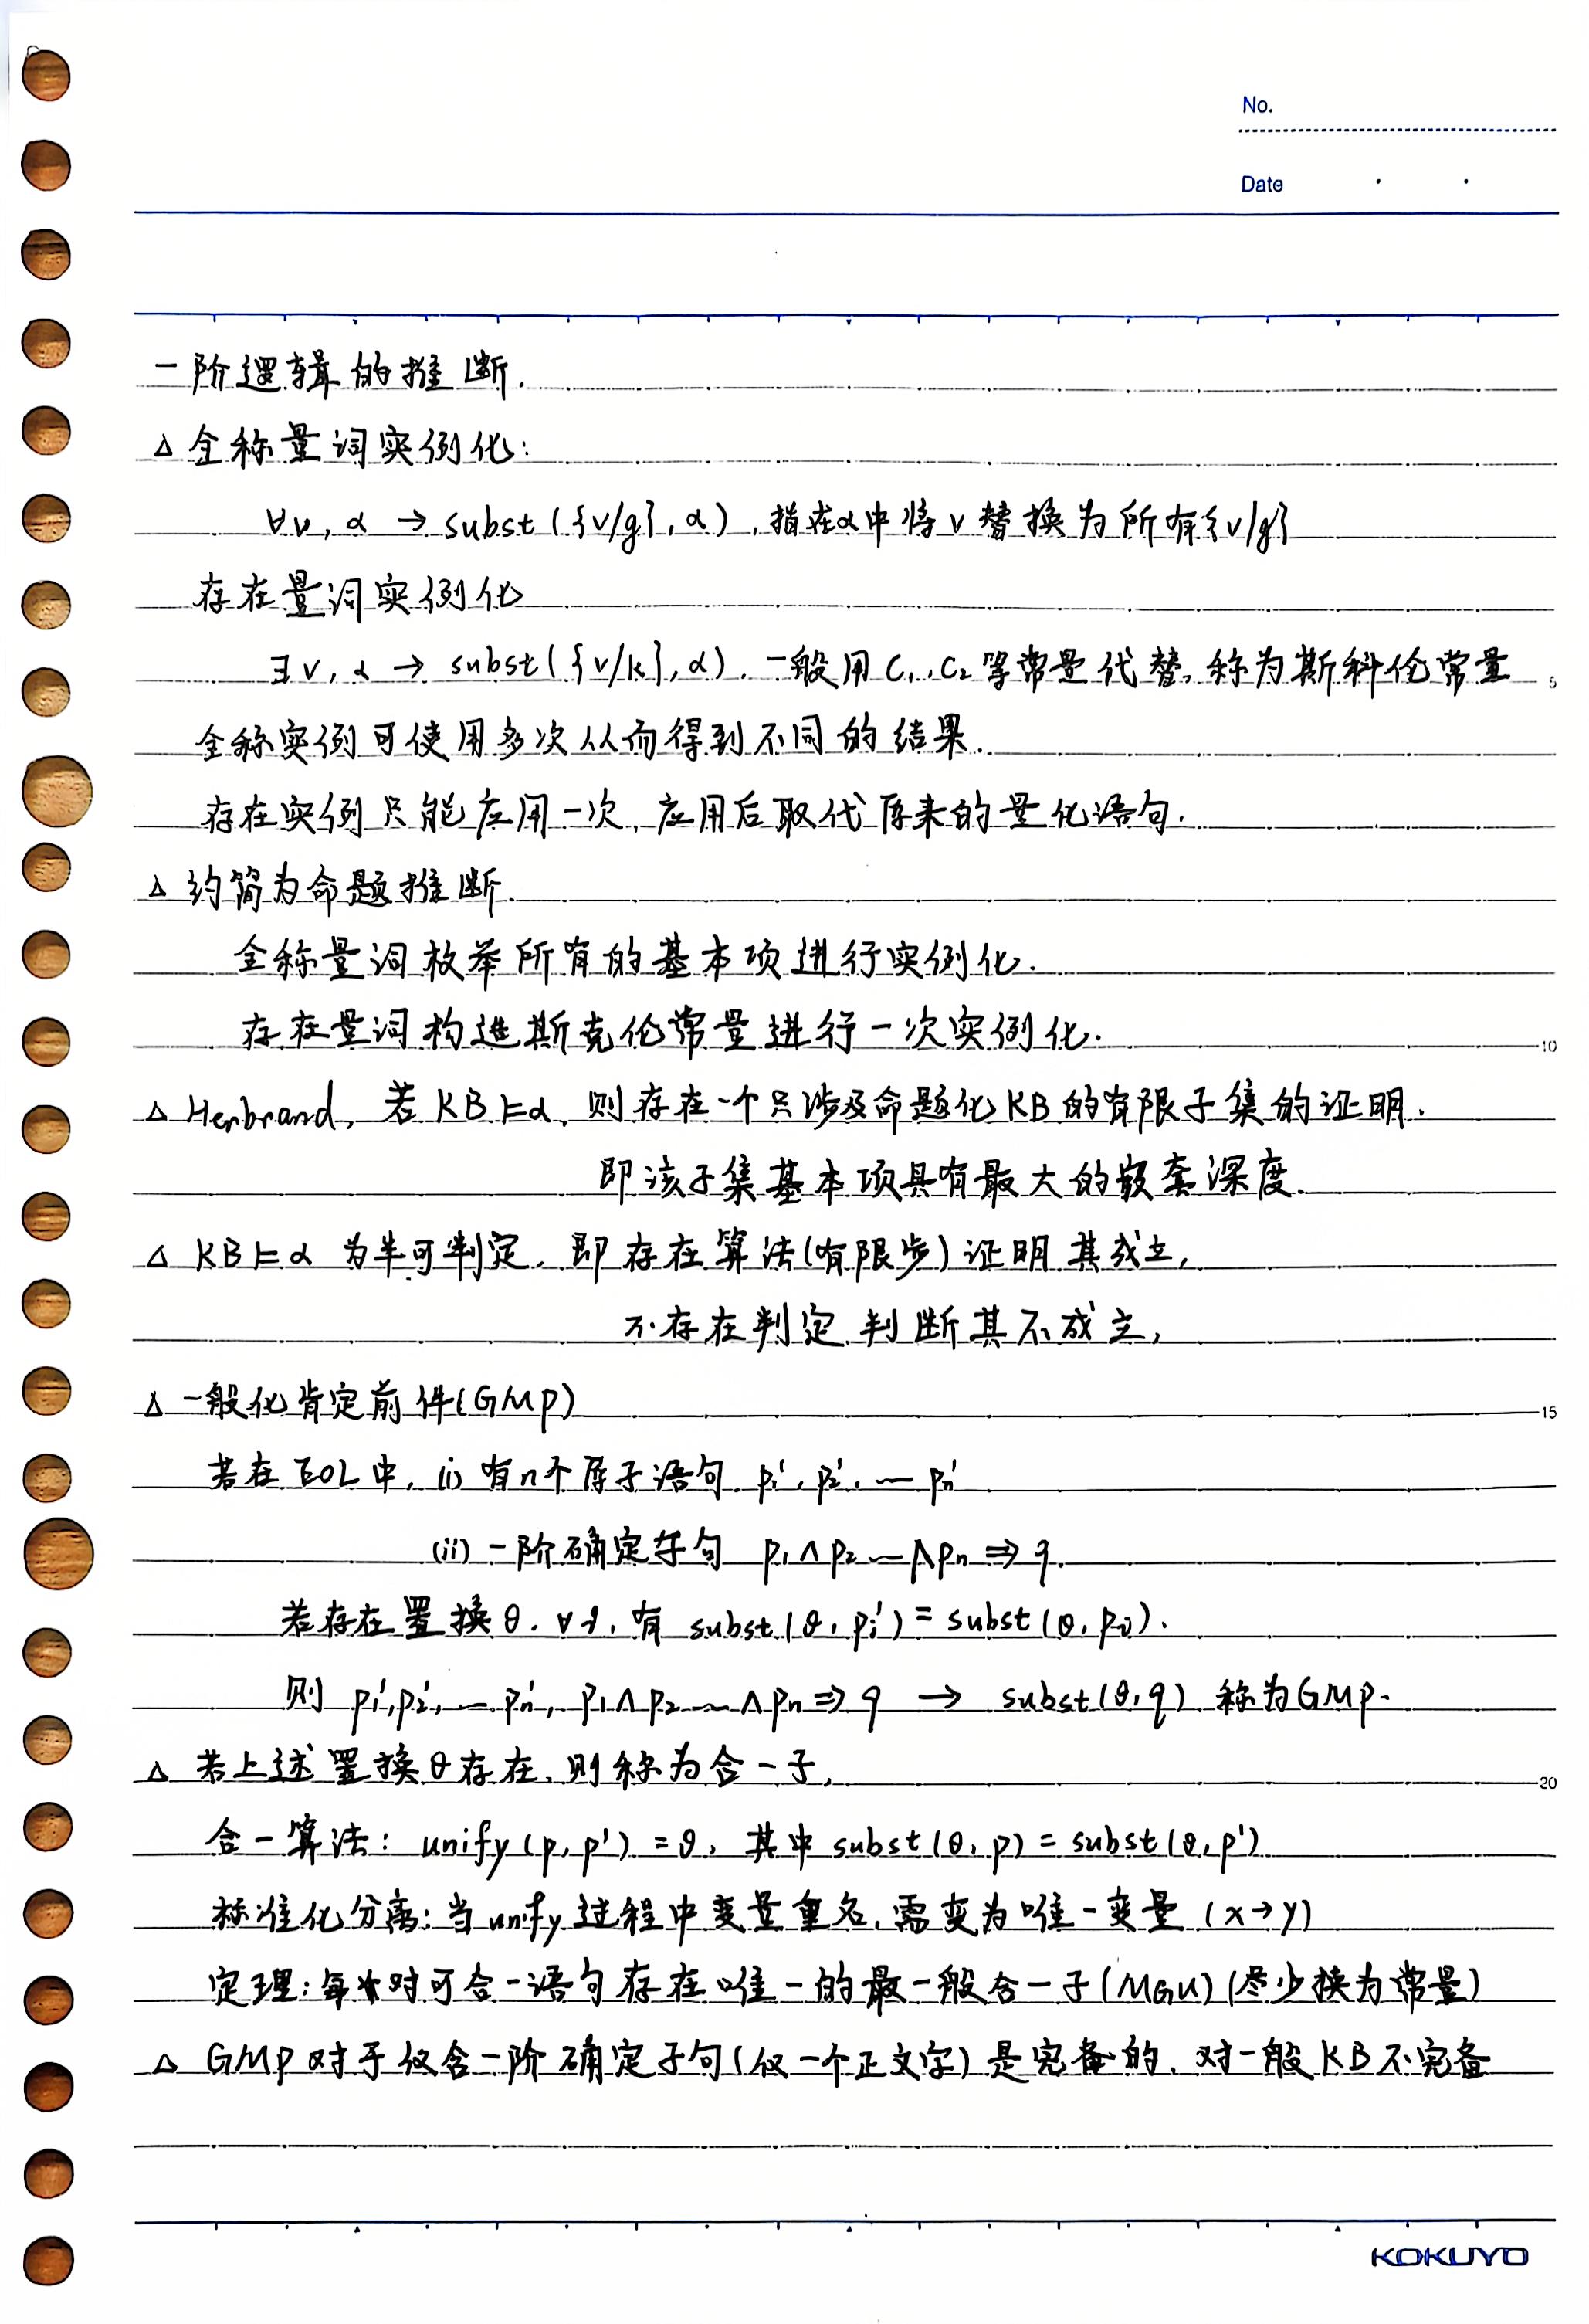 No.
Date
一阶逻辑的推断.
△ 全称量词实例化:
∀v, α → subst({v/g}, α), 指在α中将v替换为所有{v/g}
存在量词实例化
∃v, α → subst({v/k}, α). 一般用C₁, C₂等常量代替, 称为斯科伦常量
5
全称实例可使用多次从而得到不同的结果.
存在实例只能应用一次, 应用后取代原来的量化语句.
△ 约简为命题推断.
全称量词枚举所有的基本项进行实例化.
存在量词构造斯克伦常量进行一次实例化.
10
△ Herbrand, 若KB⊨α, 则存在一个只涉及命题化KB的有限子集的证明.
即该子集基本项具有最大的嵌套深度.
△ KB⊨α 为半可判定, 即存在算法(有限步)证明其成立,
不存在判定 判断其不成立,
△ 一般化肯定前件(GMP)
15
若在FOL中, (i) 有n个原子语句. p₁', p₂', … pₙ'
(ii) 一阶确定子句 p₁∧p₂…∧pₙ⇒q.
若存在置换θ. ∀i, 有 subst(θ, pᵢ') = subst(θ, pᵢ).
则 p₁', p₂', … pₙ', p₁∧p₂…∧pₙ⇒q → subst(θ, q) 称为GMP.
△ 若上述置换θ存在, 则称为合一子,
20
合一算法: unify(p, p') = θ, 其中 subst(θ, p) = subst(θ, p')
标准化分离: 当unify过程中变量重名, 需变为唯一变量 (x→y)
定理: 每对可合一语句存在唯一的最一般合一子(MGU) (尽少换为常量)
△ GMP对于仅含一阶确定子句(仅一个正文字)是完备的, 对一般KB不完备
KOKUYO